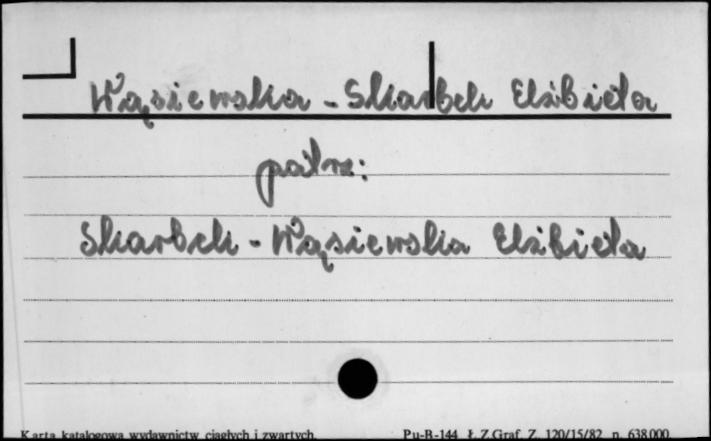 Wąsiewska - Skarbek Elżbieta
patrz:
Skarbek - Wąsiewska Elżbieta
Karta katalogowa wydawnictw ciągłych i zwartych. Pu-B-144 Ł.Z.Graf. Z. 120/15/82 n. 638000